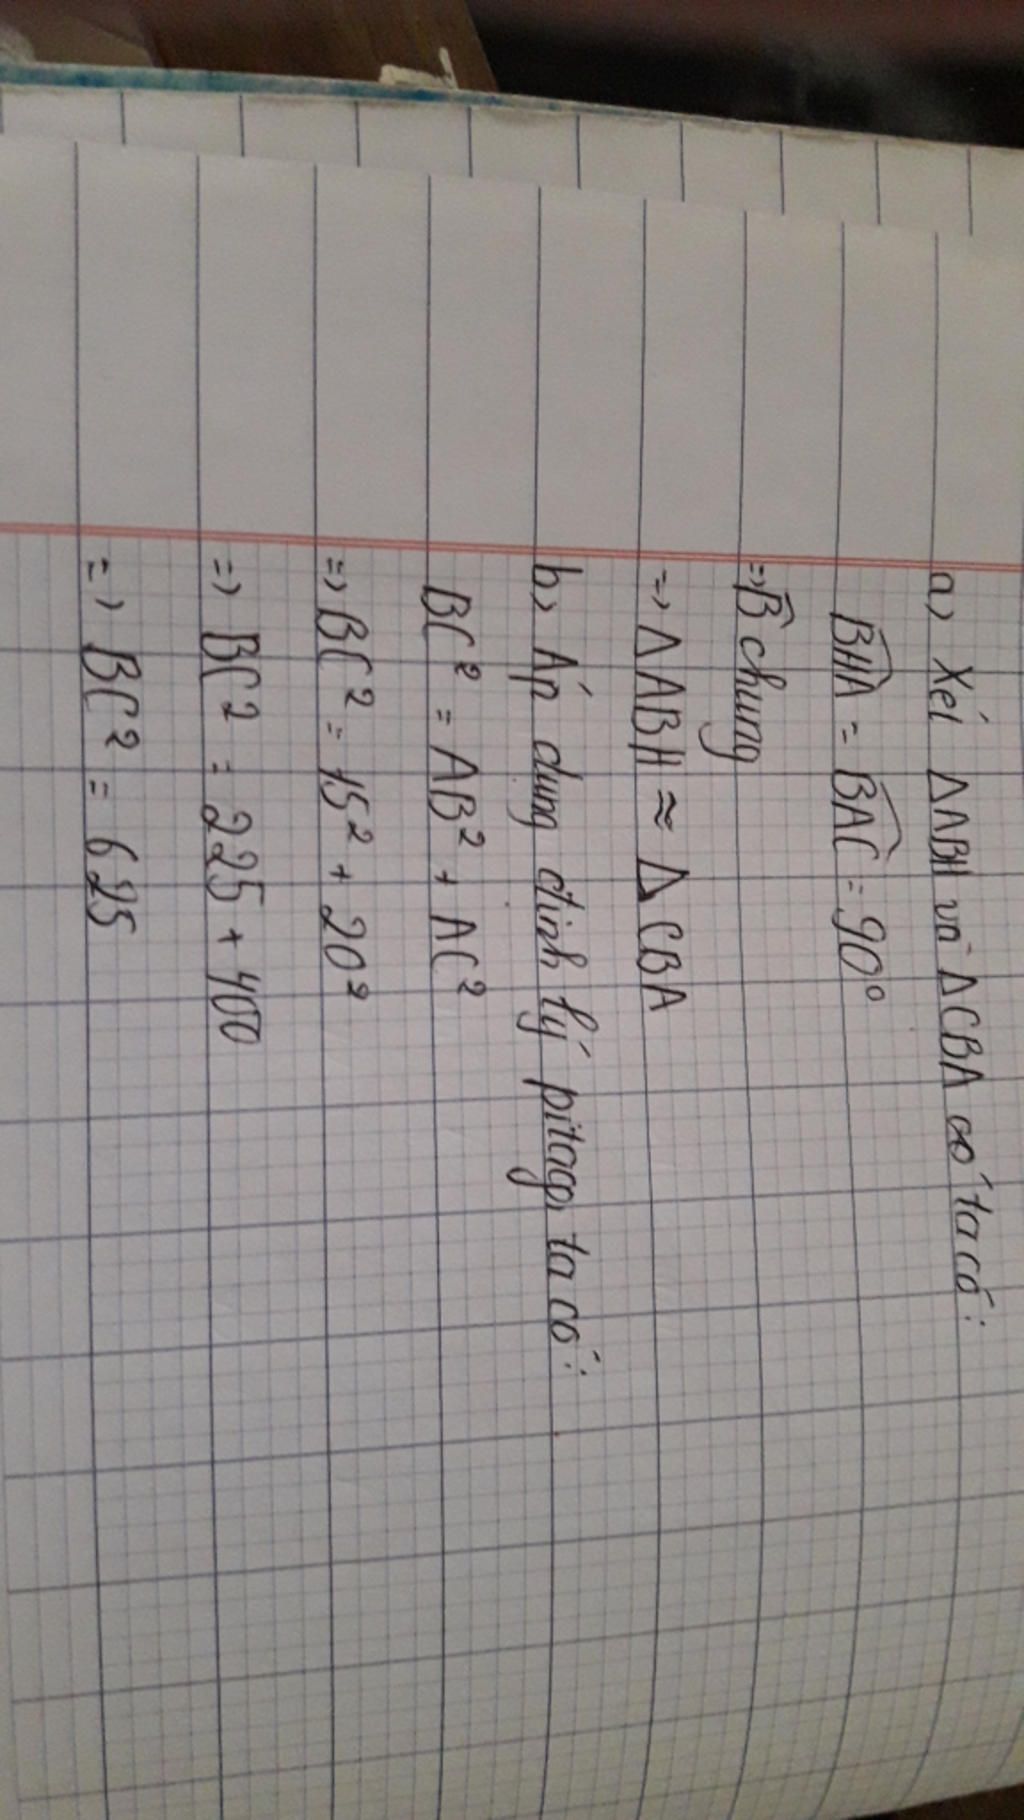 a) Xét ΔABH và ΔCBA có ta có:
B̂HA = B̂AC = 90°
=> B̂ chung
=> ΔABH ≈ ΔCBA
b) Áp dụng định lý pitago, ta có:
BC² = AB² + AC²
=> BC² = 15² + 20²
=> BC² = 225 + 400
=> BC² = 625